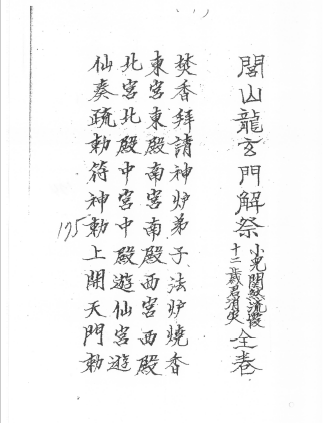 閭山龍玄門解祭
小児関煞流霞
十二歳君消灾
全卷
焚香拜請神炉弟子法炉燒香
東宮東殿南宮南殿西宮西殿
北宮北殿中宮中殿遊仙宮遊
仙奏疏勅符神勅上開天門勅
175